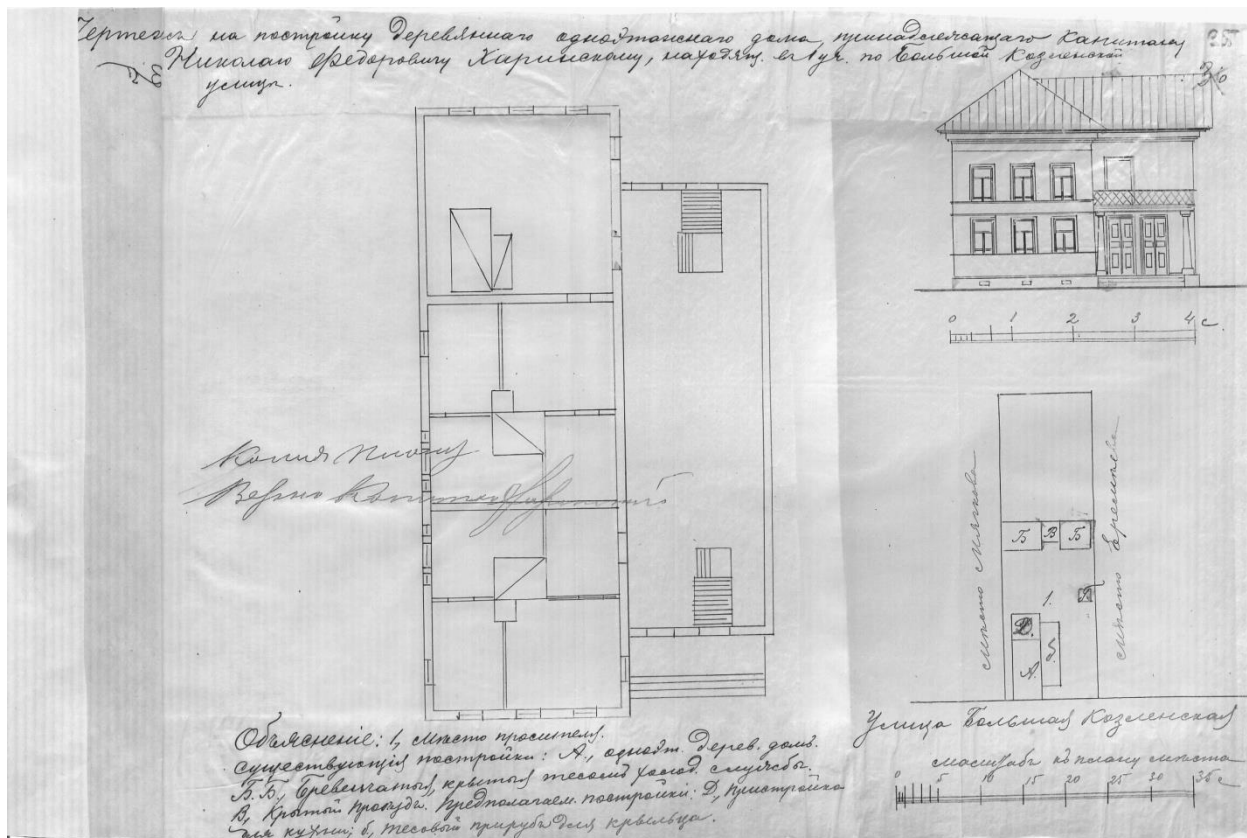 Чертежъ на постройку деревяннаго одноэтажнаго дома принадлежащаго Капитану
Николаю Федоровичу Харинскому, находящ. въ 1 уч. по Большой Козленской
улицѣ.
0 1 2 3 4 с.
Копія плану
Вѣрна Капитанъ Харинскій
мѣсто Мяхкова
мѣсто Еремѣева
Б В Б
1.
Д.
А. б.
Улица Большая Козленская
масштабъ къ плану мѣста
0 5 10 15 20 25 30 35 с
Объясненіе: 1, мѣсто просителя.
Существующія постройки: А, одноэт. дерев. домъ.
Б. Б, бревенчатыя, крытыя тесомъ холод. службы.
В, Крытый проѣздъ. Предполагаем. постройки: Д, Пристройка
для кухни; б, тесовый прирубъ для крыльца.